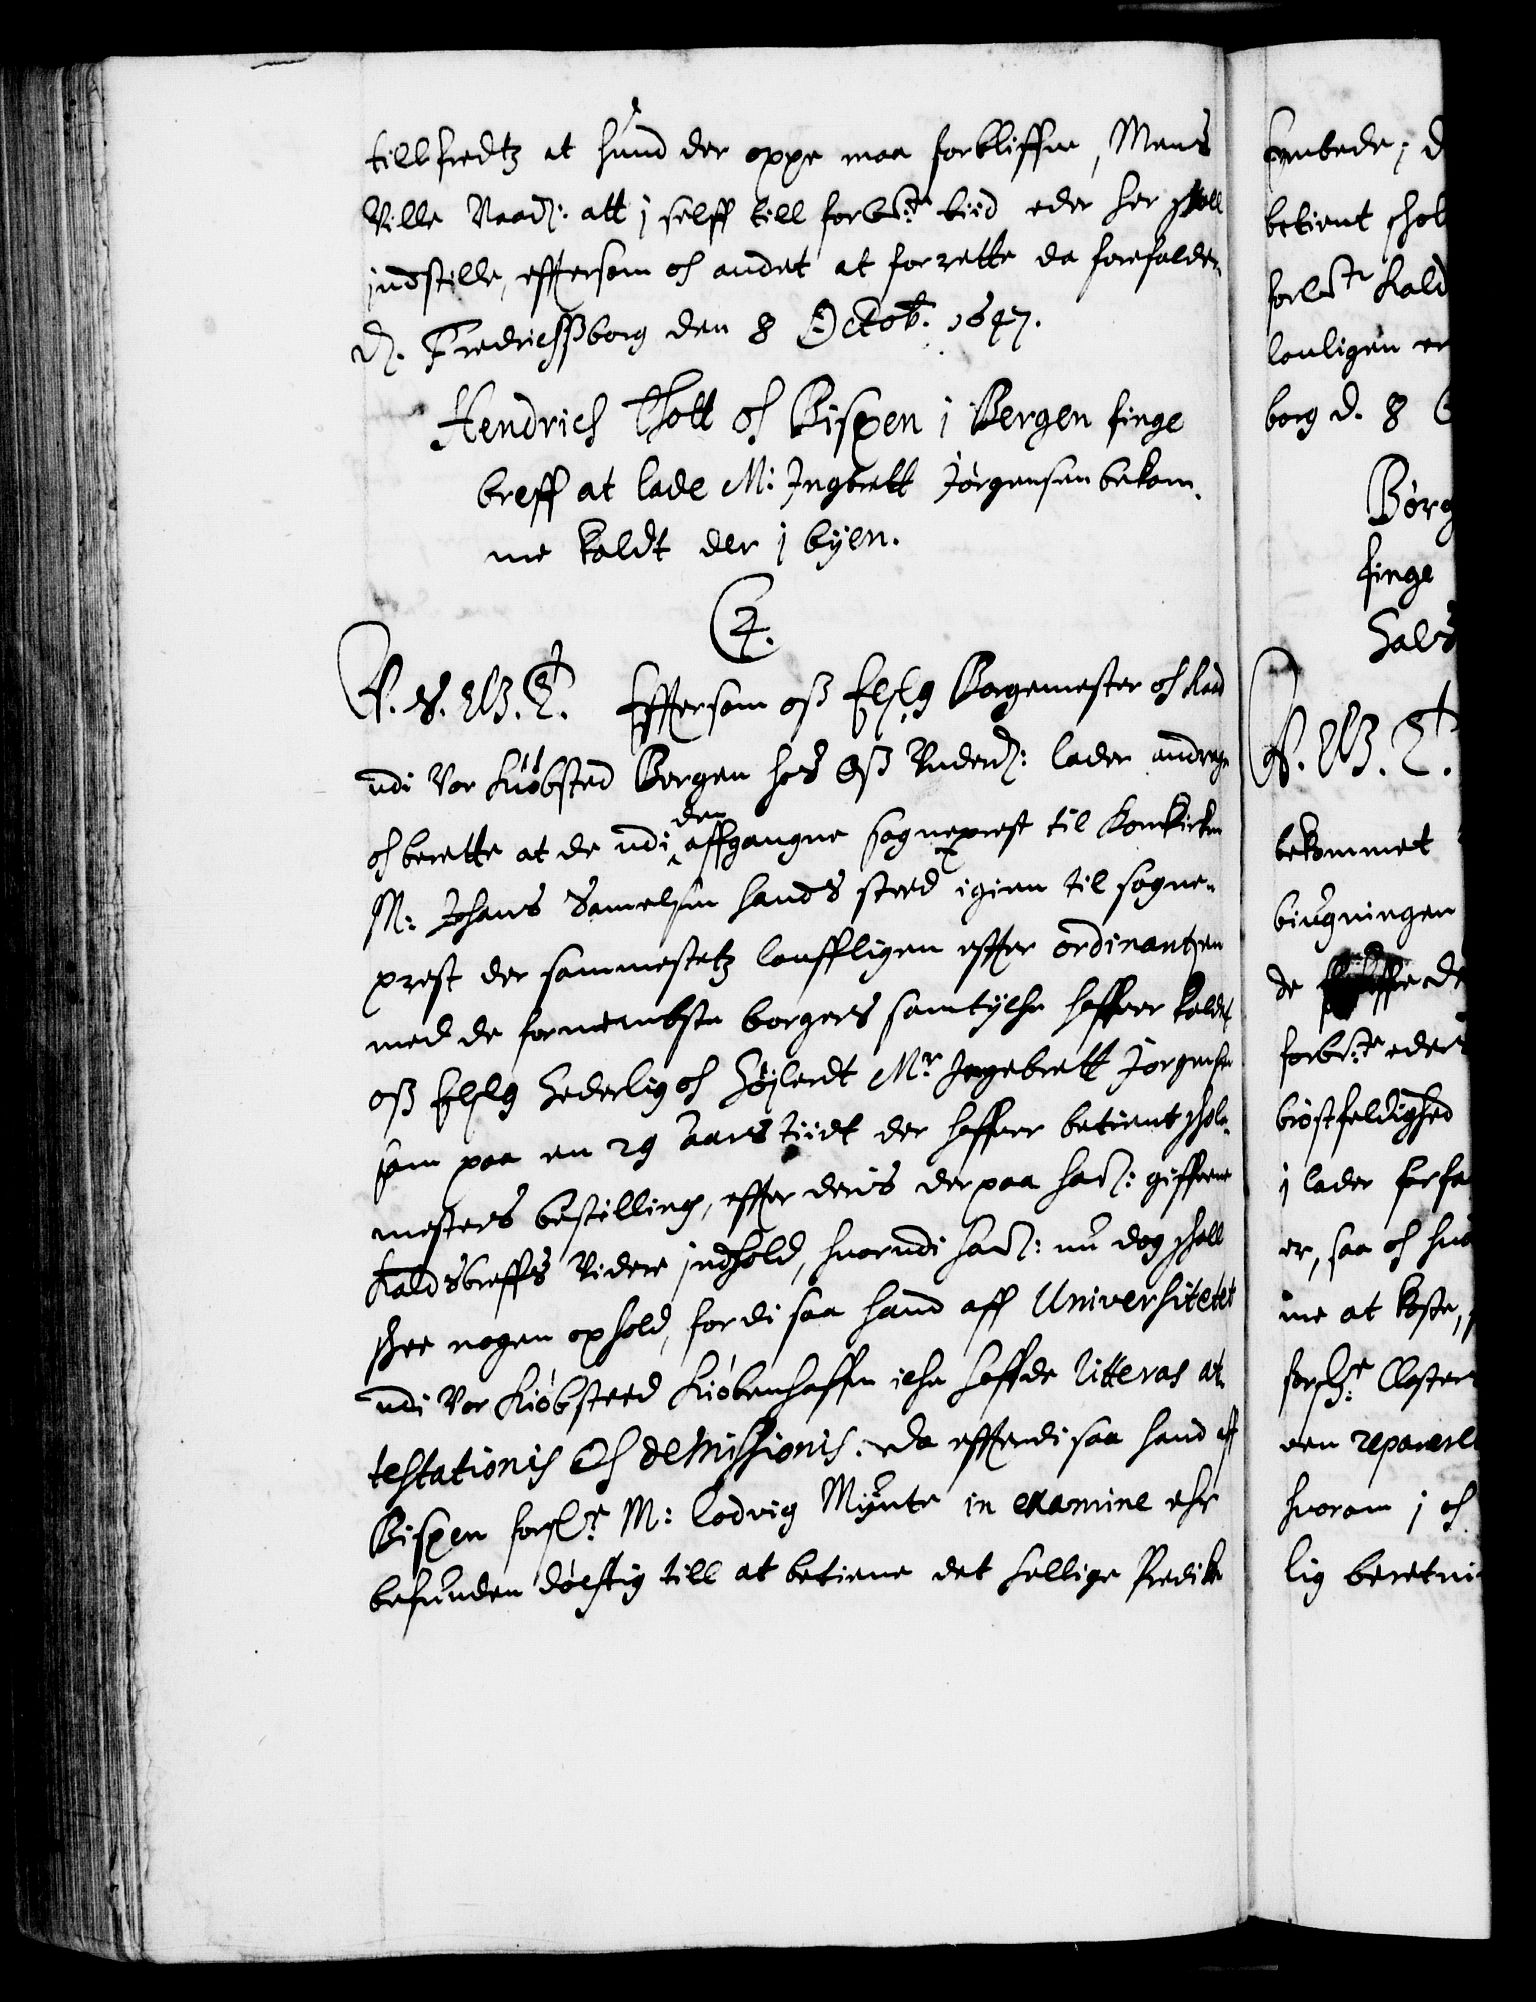 tillfredtz at hund der oppe maa forbliffue, Mens
Ville Naad: att j selff till forb:te tiid eder her skall
jndstille, effersom oc andet at forrette da forefalder.
d. Fredrichßborg den 8 Octob: 1647.
Hendrich Thott oc Bispen i Bergen finge
breff at lade M: Jngbrett Jörgensen bekom-
me kaldt der j byen.
C 4.
V. G. W. T. Effersom oß Elsl: Borgemester oc Raad
udi Vor kiöbsted Bergen hos Oß Underd: lader andrage
oc berette at de udi den affgangne sogneprest til Domkircken
M: Johans Samelsøn hands sted igien til sogne-
prest der sammestetz louffligen effter ordinantzen
med de fornembste borgers samtyche haffuer kaldet
oß Elsl: Hederlig oc Höylerdt Mr Jngebrett Jörgensen
som paa en 29 aars tiidt der haffuer betient schole-
mesters bestilling, effter deris derpaa ham: giffuene
kaldsbreffs Videre jndhold, huorudi ham: nu dog skall
skee nogen ophold, fordi saa hand aff Universitetet
udi Vor kiöbsteed Kiöbenhaffn iche haffde litteras at-
testationis Oc demissionis. Da effterdi saa hand aff
Bispen fors:te M: Lodvig Mynte in examine ehr
befunden döchtig till at betiene det hellige Predike
Embede; d
betient schol
forb:te kald
louligen er
borg d. 8 O
Börg
finge
Hals
V. G. W. T.
bekommet
biugningen
de
forb:te eder
bröstfeldighed
j lader forfa
er, saa oc hua
me at koste,
fors:te Closter
een reparere
huorom j oc
lig beretni